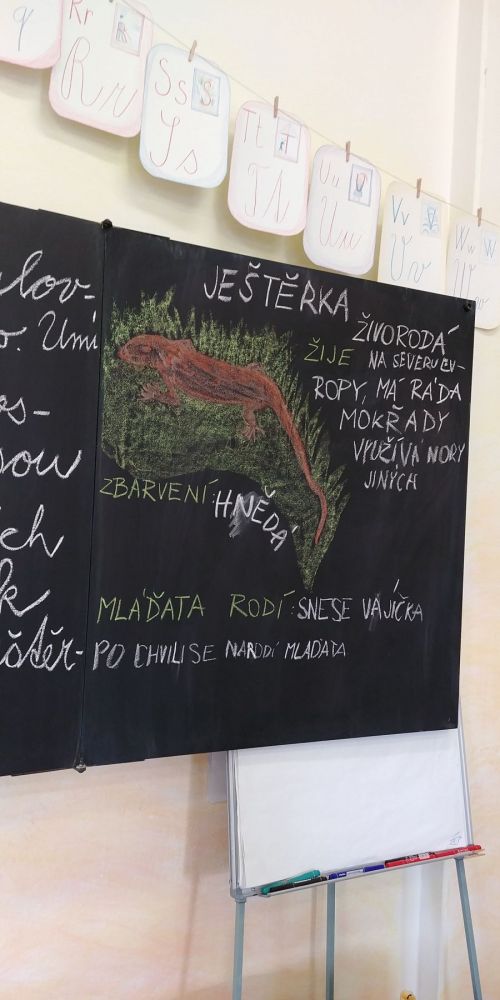 q
Rr
Rr
Ss S
Ss
Tt T
Tt
Uu U
Uu
Vv V
Vv
Ww W
W
lov-
o. Umí
os-
sou
ích
k
ještěr-
JEŠTĚRKA
ŽIVORODÁ
ŽIJE NA SEVERU EV-
ROPY, MÁ RÁDA
MOKŘADY
VYUŽÍVÁ NORY
JINÝCH
ZBARVENÍ: HNĚDÁ
MLÁĎATA RODÍ: SNESE VAJÍČKA
PO CHVILI SE NARODÍ MLAĎATA